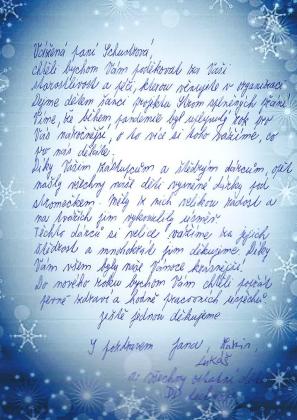 Vážená paní Schwarzová,
chtěli bychom Vám poděkovat za Vaši
starostlivost a péči, kterou věnujete v organizaci
Dejme dětem šanci projektu Strom splněných přání!
Víme, že během pandemie byl uplynulý rok pro
Vás náročnější, o to více si toho vážíme, co
pro nás děláte.
Díky Vašim zástupcům a štědrým dárcům, opět
našly všechny naše děti vysněné dárky pod
stromečkem. Měly z nich velikou radost a
na tvářích jim vykouzlily úsměv.
Těchto dárců si velice vážíme za jejich
štědrost a mnohokrát jim děkujeme. Díky
Vám všem byly naše Vánoce krásnější.
Do nového roku bychom Vám chtěli popřát
pevné zdraví a hodně pracovních úspěchů
ještě jednou děkujeme
S pozdravem Jana,
Lukáš
a všechny ostatní děti